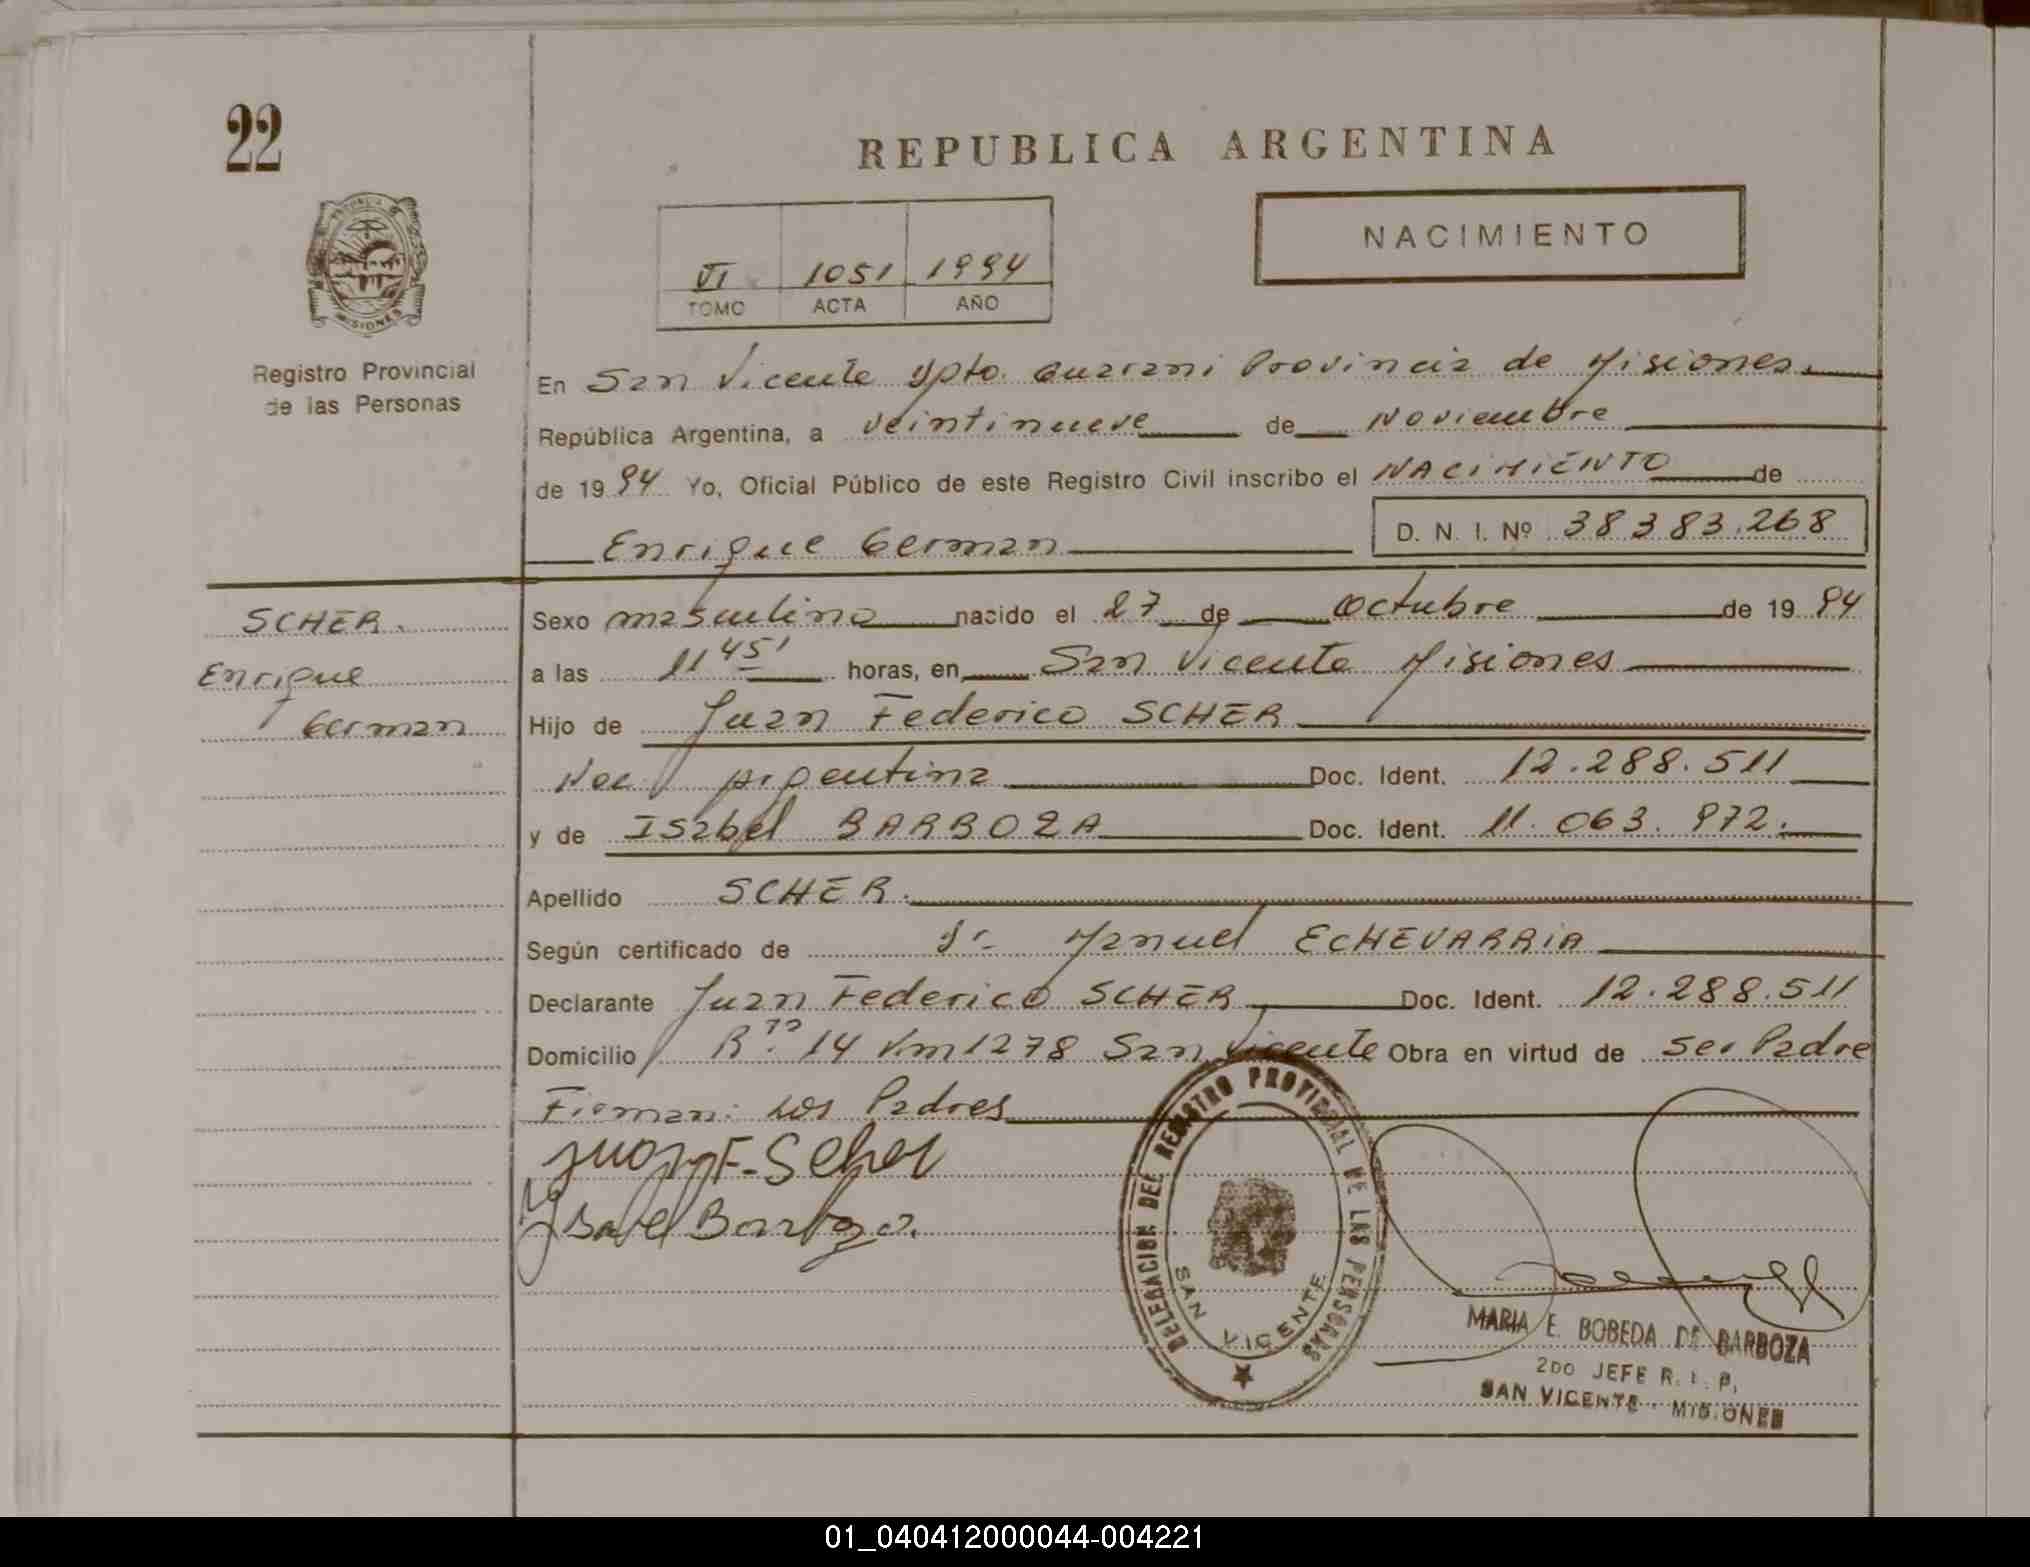 22
REPUBLICA ARGENTINA
NACIMIENTO
VI 1051 1994
TOMO ACTA AÑO
MISIONES
Registro Provincial
de las Personas
En San Vicente Dpto. Guarani Provincia de Misiones.
República Argentina, a veintinueve de Noviembre
de 1994 Yo, Oficial Público de este Registro Civil inscribo el NACIMIENTO de
Enrique German D. N. I. Nº 38383.268
SCHER.
Enrique
German
Sexo masculino nacido el 27 de Octubre de 1994
a las 11 45' horas, en San Vicente Misiones
Hijo de Juan Federico SCHER
Nac Argentina Doc. Ident. 12.288.511
y de Isabel BARBOZA Doc. Ident. 11.063.972.
Apellido SCHER.
Según certificado de Dr. Manuel ECHEVARRIA
Declarante Juan Federico SCHER Doc. Ident. 12.288.511
Domicilio 14 Km 1278 San Vicente Obra en virtud de ser Padre
Firman: Los Padres
Juan F. Scher
Ysabel Barboza.
DELEGACION DEL REGISTRO PROVINCIAL DE LAS PERSONAS
SAN VICENTE
MARIA E. BOBEDA DE BARBOZA
2DO JEFE R. I. P.
SAN VICENTE - MISIONES
01_040412000044-004221